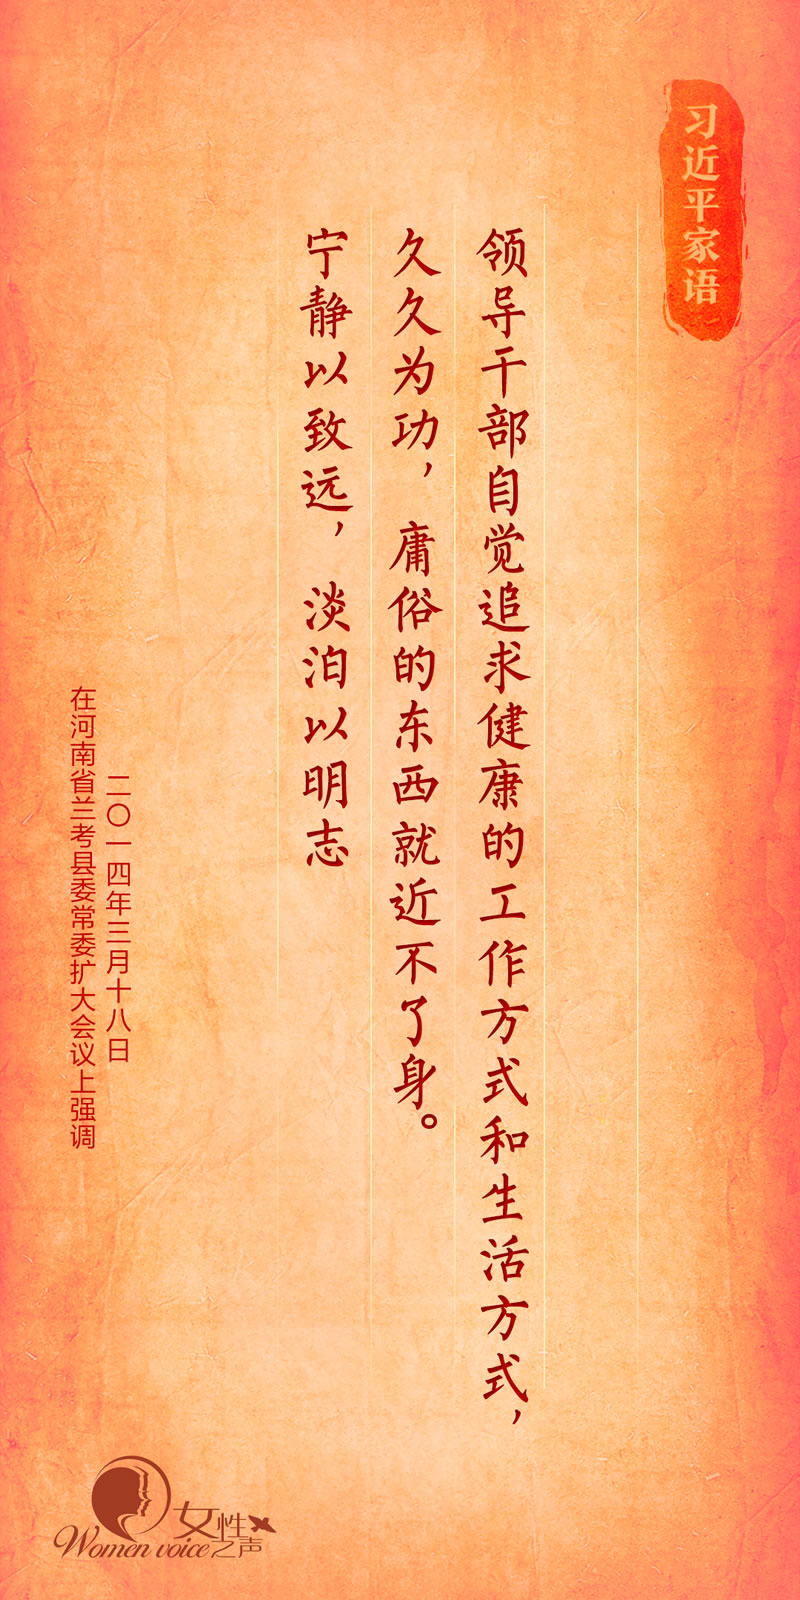 习近平家语
领导干部自觉追求健康的工作方式和生活方式，
久久为功，庸俗的东西就近不了身。
宁静以致远，淡泊以明志
二〇一四年三月十八日
在河南省兰考县委常委扩大会议上强调
女性之声
Women voice